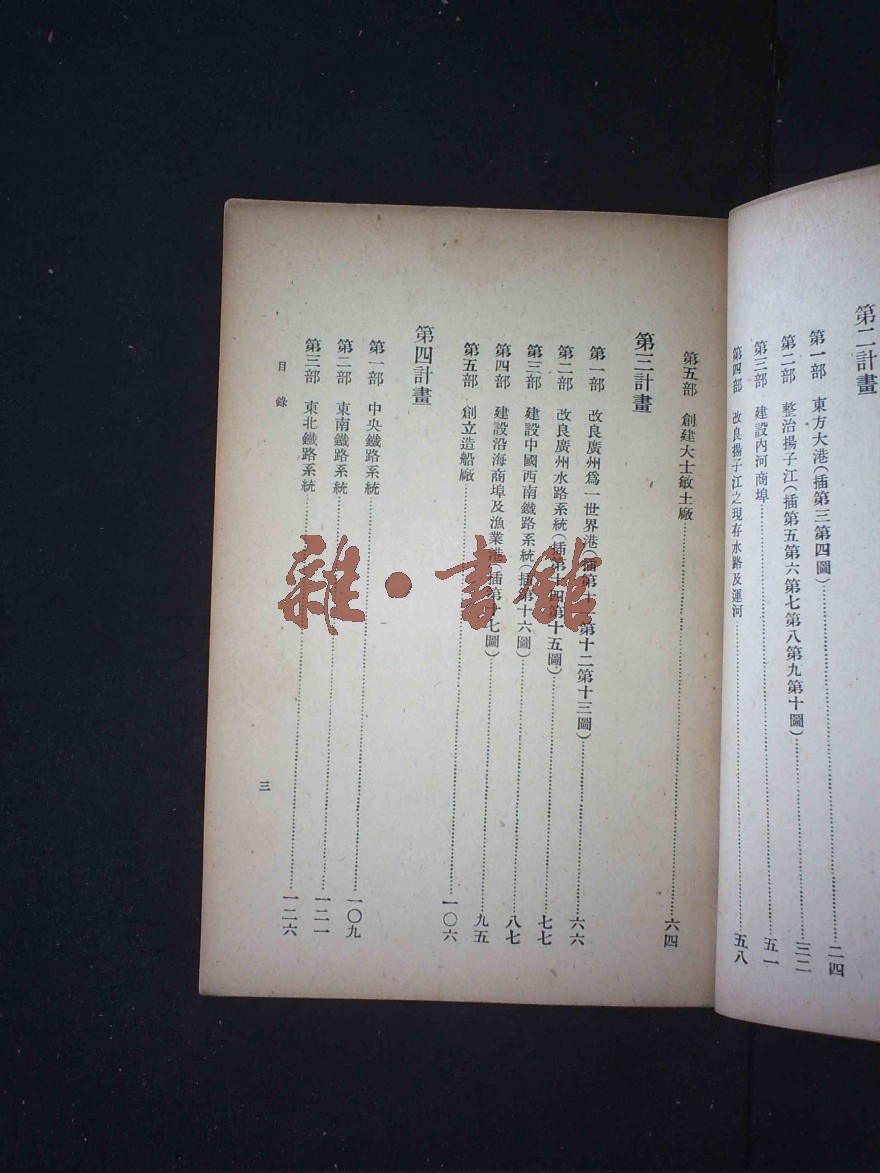 第二計畫
第一部 東方大港(插第三第四圖)……二四
第二部 整治揚子江(插第五第六第七第八第九第十圖)……三二
第三部 建設內河商埠……五一
第四部 改良揚子江之現存水路及運河……五八
第五部 創建大士敏土廠……六四
第三計畫
第一部 改良廣州爲一世界港(插第十一第十二第十三圖)……六六
第二部 改良廣州水路系統(插第十四第十五圖)……七七
第三部 建設中國西南鐵路系統(插第十六圖)……八七
第四部 建設沿海商埠及漁業港(插第十七圖)……九五
第五部 創立造船廠……一〇六
第四計畫
第一部 中央鐵路系統……一〇九
第二部 東南鐵路系統……一二一
第三部 東北鐵路系統……一二六
目錄
三
雜·書館